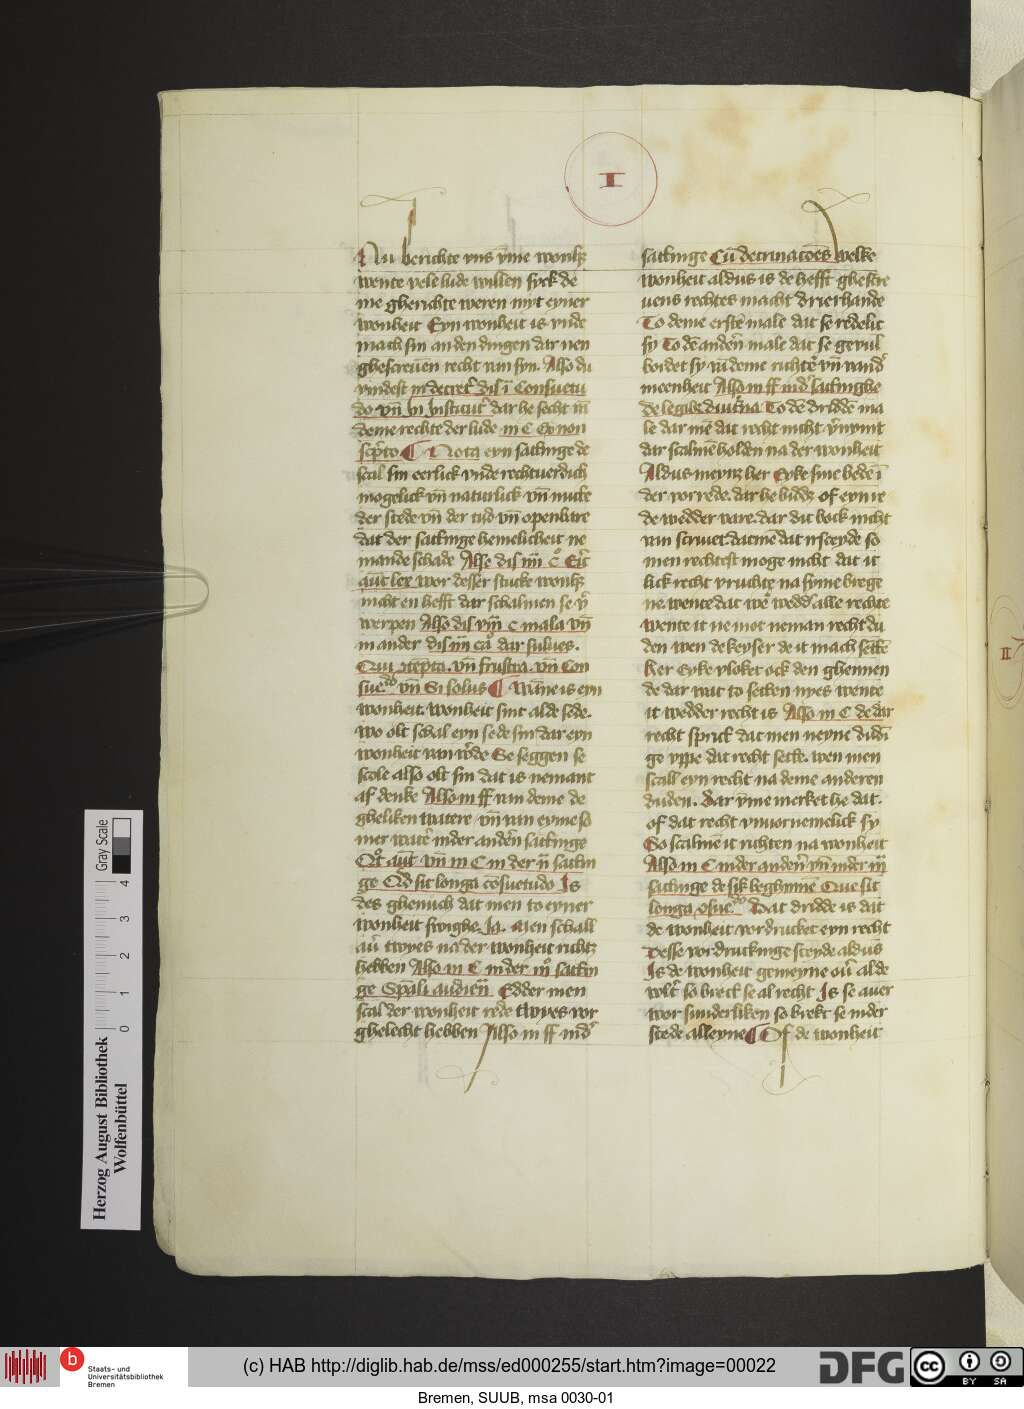 I
Nu berichte vns vme wonhz
wente vele lude willen syck de
me gherichte weren myt eyner
wonheit Eyn wonheit is vnde
mach sin an den dingen dar nen
ghescreuen recht van syn. Also du
vindest in decret' dis i Consuetu
do vn in Institut' dar he secht in
deme rechte der lude in C Ex non
scpto ¶ Nota eyn satinge de
scal sin eerlick vnde rechtuerdich
mogelick vn naturlick vn nutte
der stede vn der tyd vn openbare
dat der satinge hemelicheit ne
mande schade Also dis iiii c Erit
aut lex wor desser stucke wonhz
nicht en hefft dar schalmen se v'
werpen Also dis viii c mala vn
in ander dis iii ca dar sulues.
vn frustra. vn Con
sue vn Si solus ¶ Wane is eyn
wonheit. Wonheit sint alde sede.
wo olt schal eyn sede sin dar eyn
wonheit van Se seggen se
scole also olt sin dat is nemant
af denke Also in ff van deme de
gheliken watere vn van eyme so
mer wat' in der anden satinge
aut vn in C in der ii satin
ge Qd sit longa cosuetudo Is
des ghenuch dat men to eyner
wonheit swighe. Ja. Men schall
au' twyes na der wonheit richtz
hebben Also in C in der iii satin
ge Edder men
scal der wonheit rede twyes vor
ghelecht hebben Also in ff ind'
satinge Cu welke
wonheit aldus is de hefft ghescre
uens rechtes macht drierhande
To deme erste male dat se redelic
sy To de anden male dat se gevul
bordet sy
meenheit Also in ff ind' satinghe
de legibz To de dridde ma
le dar me dat recht nicht
dar scalme holden na der wonheit
Aldus meynz her Eyke sine bede i
der vorrede. dar he biddz of eyn re
de wedder vare. dar dit bock nicht
van scriuet datme dat so
men rechtest moge nicht dat it
lick recht vruchte na syme brege
ne wente dat we' alle rechte
wente it ne mot neman recht du
den wen de keyser de it mach sette
Her Eyke vloket ock den ghennen
de dar wat to setten nyes wente
it wedder recht is Also in C de dar
recht sprick dat men neyne dudi
ge vppe dat recht sette. wen men
scall eyn recht na deme anderen
duden. Dar vme merket he dat.
of dat recht vnuornemelick sy
So scalme it richten na wonheit
Also in C in der anden vn in der iii
satinge de sik beghinne Que sit
longa Dat dridde is dat
de wonheit vordrucket eyn recht
Desse vordruckinge aldus
Is de wonheit gemeyne ou' al de
so breck se al recht Is se auer
wor sunderliken so brekt se in der
stede alleyne ¶ Of de wonheit
II
Gray Scale
0 1 2 3 4
Herzog August Bibliothek
Wolfenbüttel
b
Staats- und
Universitätsbibliothek
Bremen
(c) HAB http://diglib.hab.de/mss/ed000255/start.htm?image=00022
DFG
cc
BY SA
Bremen, SUUB, msa 0030-01